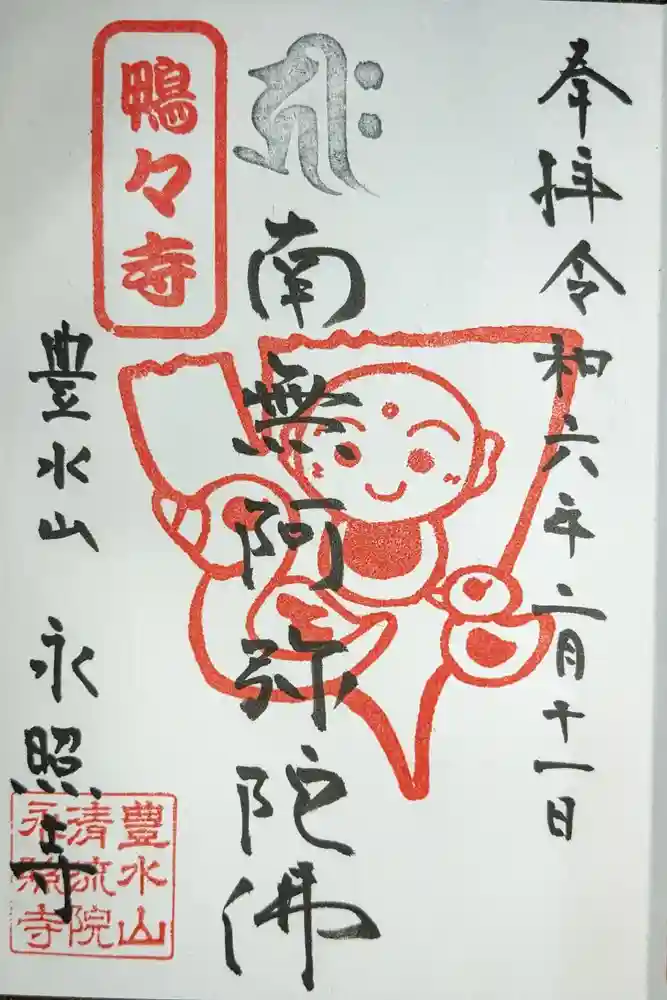 奉拝令和六年二月十一日
南無阿弥陀佛
鴨々寺
豊水山 永照寺
豊水山
清流院
永照寺